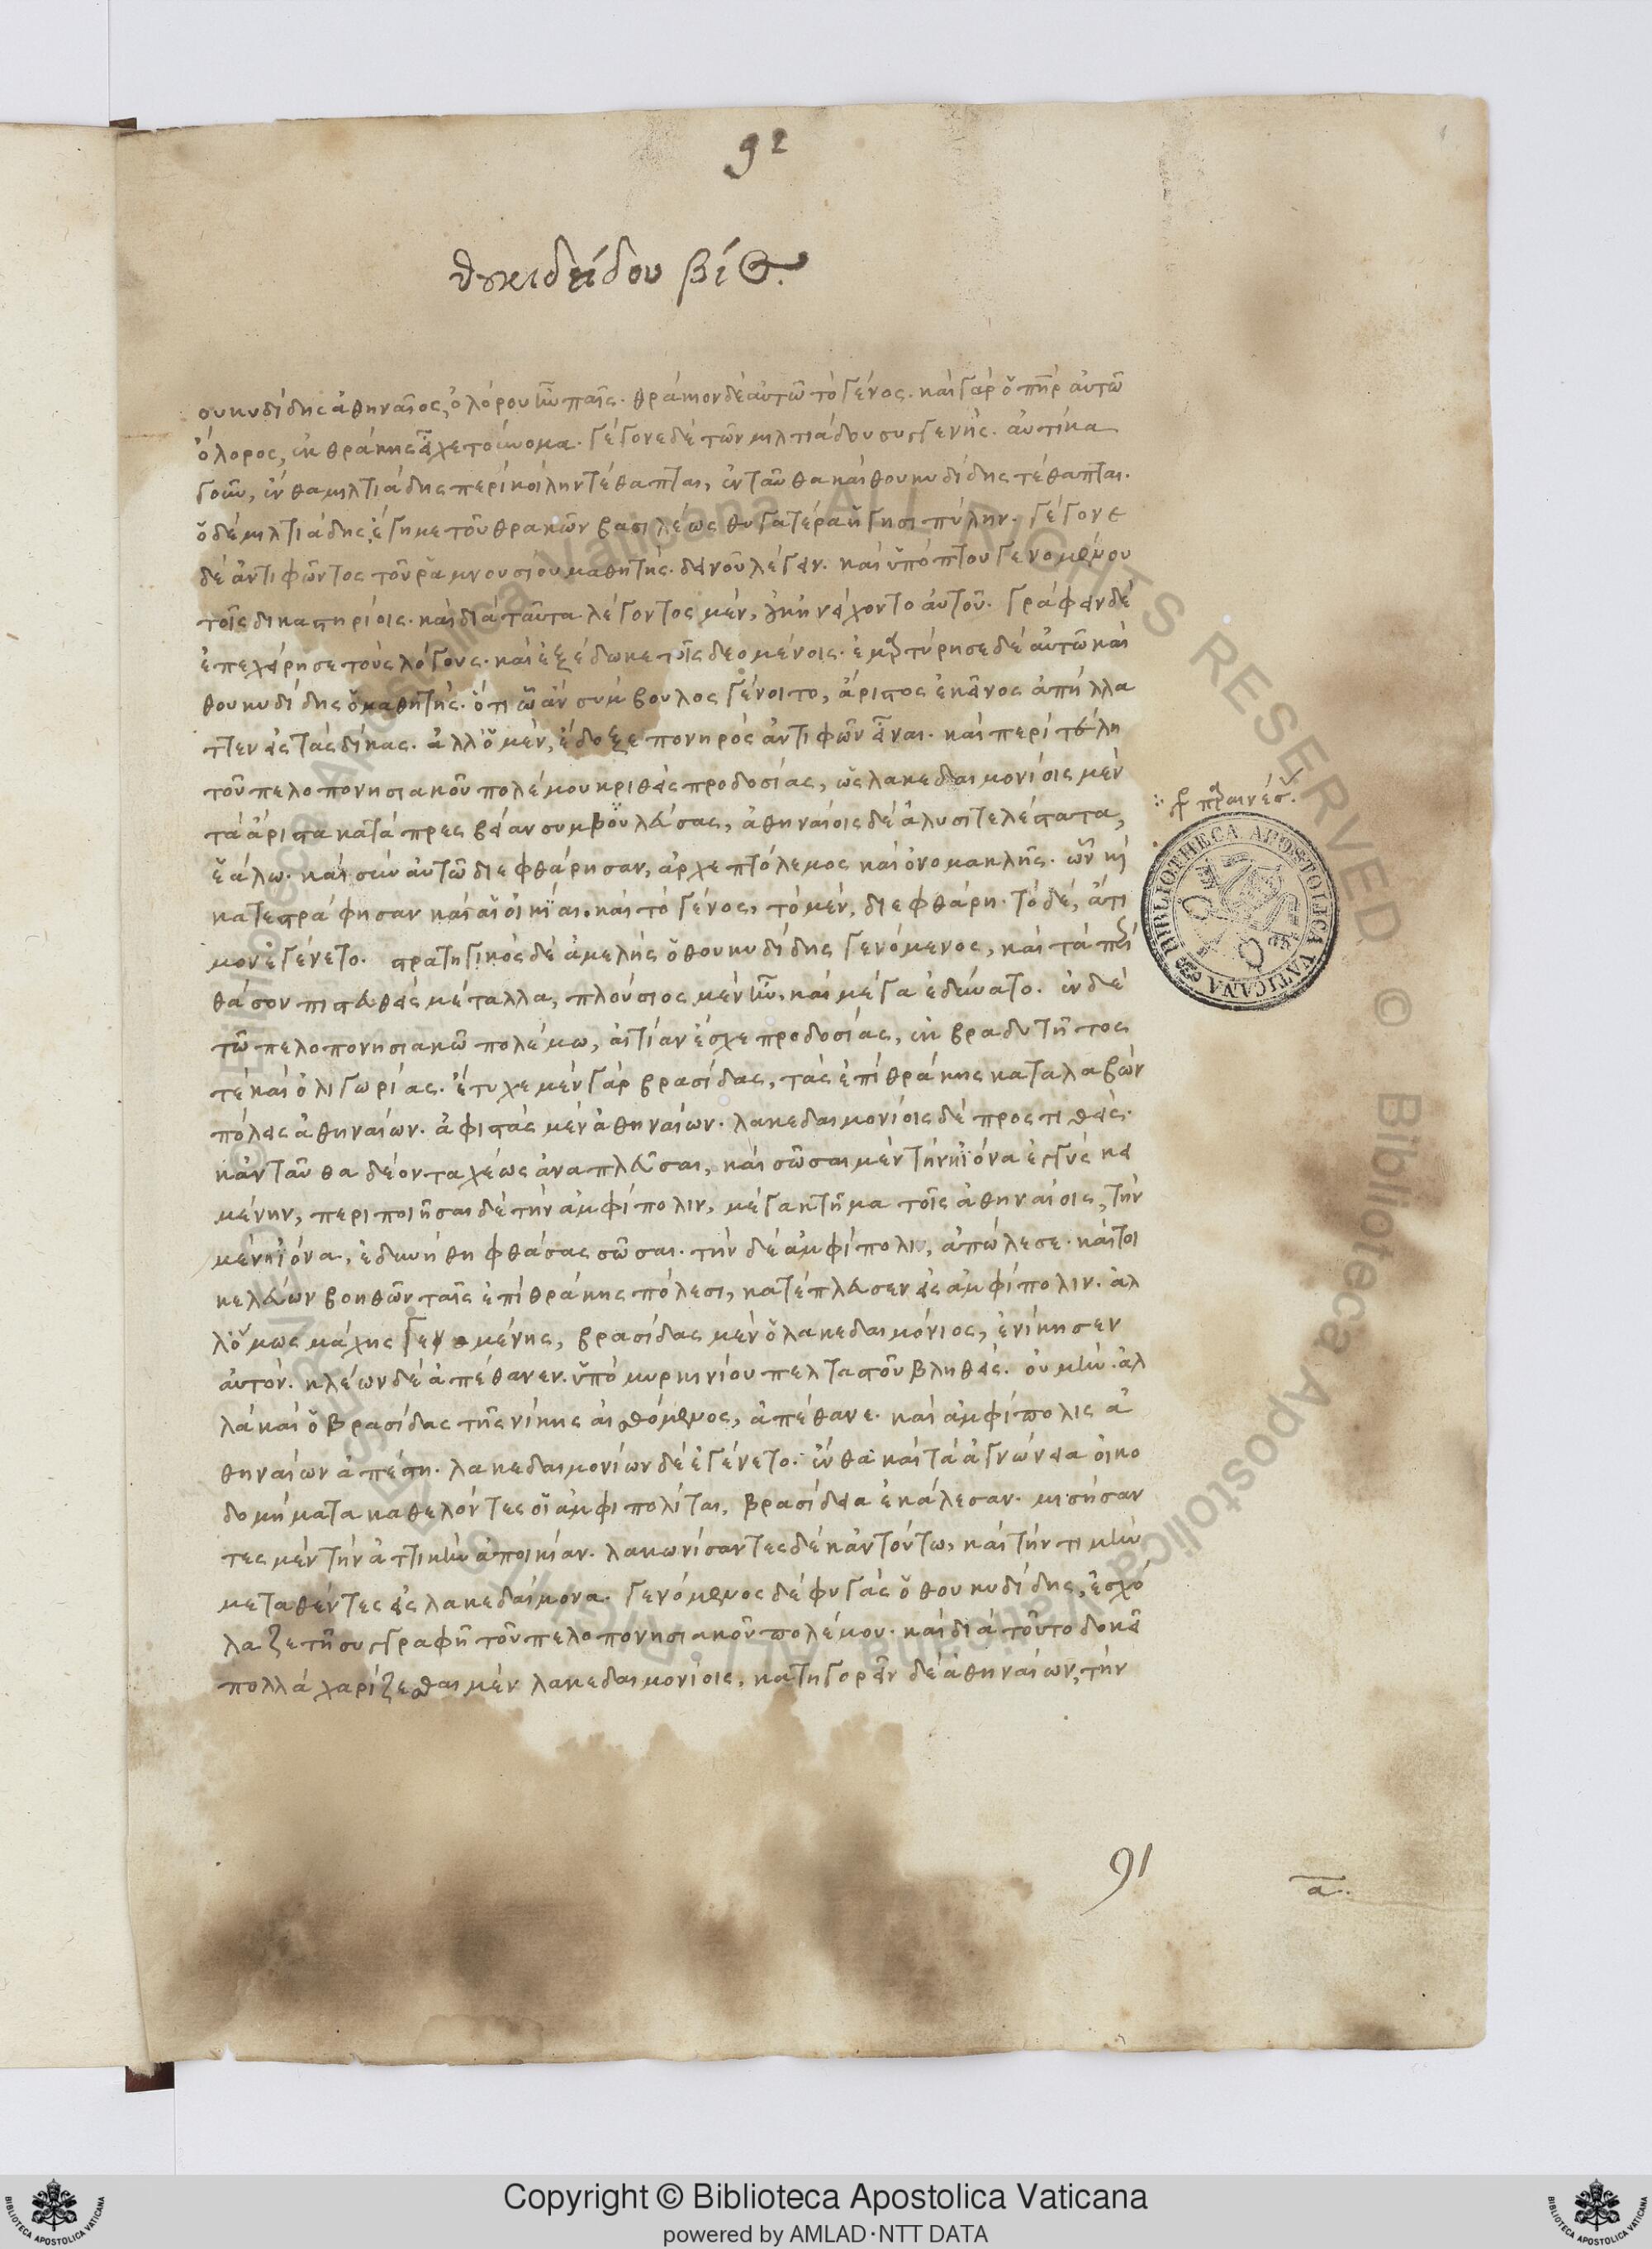 92
θουκιδείδου βίος.
ουκυδίδης ἀθηναῖος, ὀλόρου ἦν παῖς. θράκιον δὲ αὐτῶ τὸ γένος. καὶ γὰρ ὁ πηρ αὐτῶ
ὄλορος, ἐκ θράκης εἶχε τοὔνομα. γέγονε δὲ τῶν μιλτιάδου συγγενής. αὐτίκα
γοῦν, ἔνθα μιλτιάδης περὶ κοίλην τέθαπται, ἐνταῦθα καὶ θουκυδίδης τέθαπται.
ὁ δὲ μιλτιάδης, ἔγημε τοῦ θρακῶν βασιλέως θυγατέρα ἡγησιπύλην. γέγονε
δὲ ἀντιφῶντος τοῦ ῥαμνουσίου μαθητής. δεινοῦ λέγειν. καὶ ὑπόπτου γενομένου
τοῖς δικαστηρίοις. καὶ διὰ ταῦτα λέγοντος μὲν, οὐκ ἠνείχοντο αὐτοῦ. γράφειν δὲ
ἐπεχείρησε τοὺς λόγους. καὶ ἐξέδωκε τοῖς δεομένοις. ἐμαρτύρησε δὲ αὐτῶ καὶ
θουκυδίδης ὁ μαθητής. ὅτι ὧ ἂν σύμβουλος γένοιτο, ἄριστος ἐκεῖνος ἀπήλλα
ττεν εἰς τὰς δίκας. ἀλλ' ὁ μὲν, ἔδοξε πονηρὸς ἀντιφῶν εἶναι. καὶ περὶ τέλη
τοῦ πελοπονησιακοῦ πολέμου κριθεὶς προδοσίας, ὡς λακεδαιμονίοις μὲν
τὰ ἄριστα κατὰ πρεσβείαν συμβουλεύσας, ἀθηναίοις δὲ ἀλυσιτελέστατα,
ἑάλω. καὶ σὺν αὐτῶ διεφθάρησαν, ἀρχεπτόλεμος καὶ ὀνομακλῆς. ὧν καὶ
κατεστράφησαν καὶ αἱ οἰκίαι. καὶ τὸ γένος, τὸ μὲν, διεφθάρη. τὸ δὲ, ἄτι
μον ἐγένετο. στρατηγικὸς δὲ ἀμελὴς ὁ θουκυδίδης γενόμενος, καὶ τὰ περὶ
θάσον πιστευθεὶς μέταλλα, πλούσιος μὲν ἦν, καὶ μέγα ἐδύνατο. ἐν δὲ
τῶ πελοπονησιακῶ πολέμω, αἰτίαν ἔσχε προδοσίας, ἐκ βραδυτῆτος
τὲ καὶ ὀλιγωρίας. ἔτυχε μὲν γὰρ βρασίδας, τὰς ἐπὶ θράκης καταλαβὼν
πόλεις ἀθηναίων. ἀφιστὰς μὲν ἀθηναίων. λακεδαιμονίοις δὲ προστιθείς.
κἀνταῦθα δέον ταχέως ἀναπλεῦσαι, καὶ σῶσαι μὲν τὴν ἠϊόνα ἐγγὺς κει
μένην, περιποιῆσαι δὲ τὴν ἀμφίπολιν, μέγα κτῆμα τοῖς ἀθηναίοις, τὴν
μὲν ἠϊόνα, ἐδυνήθη φθάσας σῶσαι. τὴν δὲ ἀμφίπολιν, ἀπώλεσε. καίτοι
κελεύων βοηθῶν ταῖς ἐπὶ θράκης πόλεσι, κατέπλευσεν εἰς ἀμφίπολιν. ἀλ
λ' ὅμως μάχης γενομένης, βρασίδας μὲν ὁ λακεδαιμόνιος, ἐνίκησεν
αὐτόν. κλέων δὲ ἀπέθανεν. ὑπὸ μυρκινίου πελταστοῦ βληθείς. οὐ μὴν. ἀλ
λὰ καὶ ὁ βρασίδας τῆς νίκης αἰσθόμενος, ἀπέθανε. καὶ ἀμφίπολις ἀ
θηναίων ἀπέστη. λακεδαιμονίων δὲ ἐγένετο. ἔνθα καὶ τὰ ἁγνώνεια οἰκο
δομήματα καθελόντες οἱ ἀμφιπολῖται, βρασίδεια ἐκάλεσαν. μισήσαν
τες μὲν τὴν ἀττικὴν ἀποικίαν. λακωνίσαντες δὲ κἀν τούτω, καὶ τὴν τιμὴν
μεταθέντες εἰς λακεδαίμονα. γενόμενος δὲ φυγὰς ὁ θουκυδίδης, ἐσχό
λαζε τῆ συγγραφῆ τοῦ πελοπονησιακοῦ πολέμου. καὶ διὰ τοῦτο δοκεῖ
πολλὰ χαρίζεσθαι μὲν λακεδαιμονίοις, κατηγορεῖν δὲ ἀθηναίων, τὴν
BIBLIOTHECA APOSTOLICA VATICANA
91
α
Copyright © Biblioteca Apostolica Vaticana
powered by AMLAD·NTT DATA